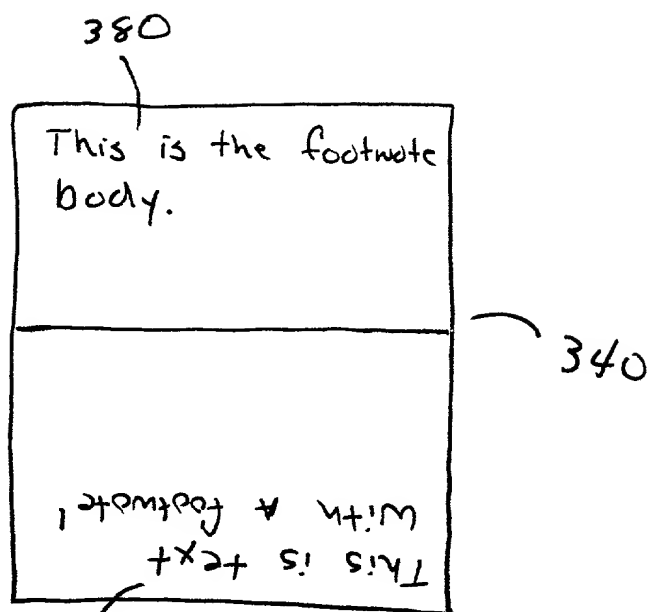 380
This is the footnote
body.
340
This is text
with A footnote¹